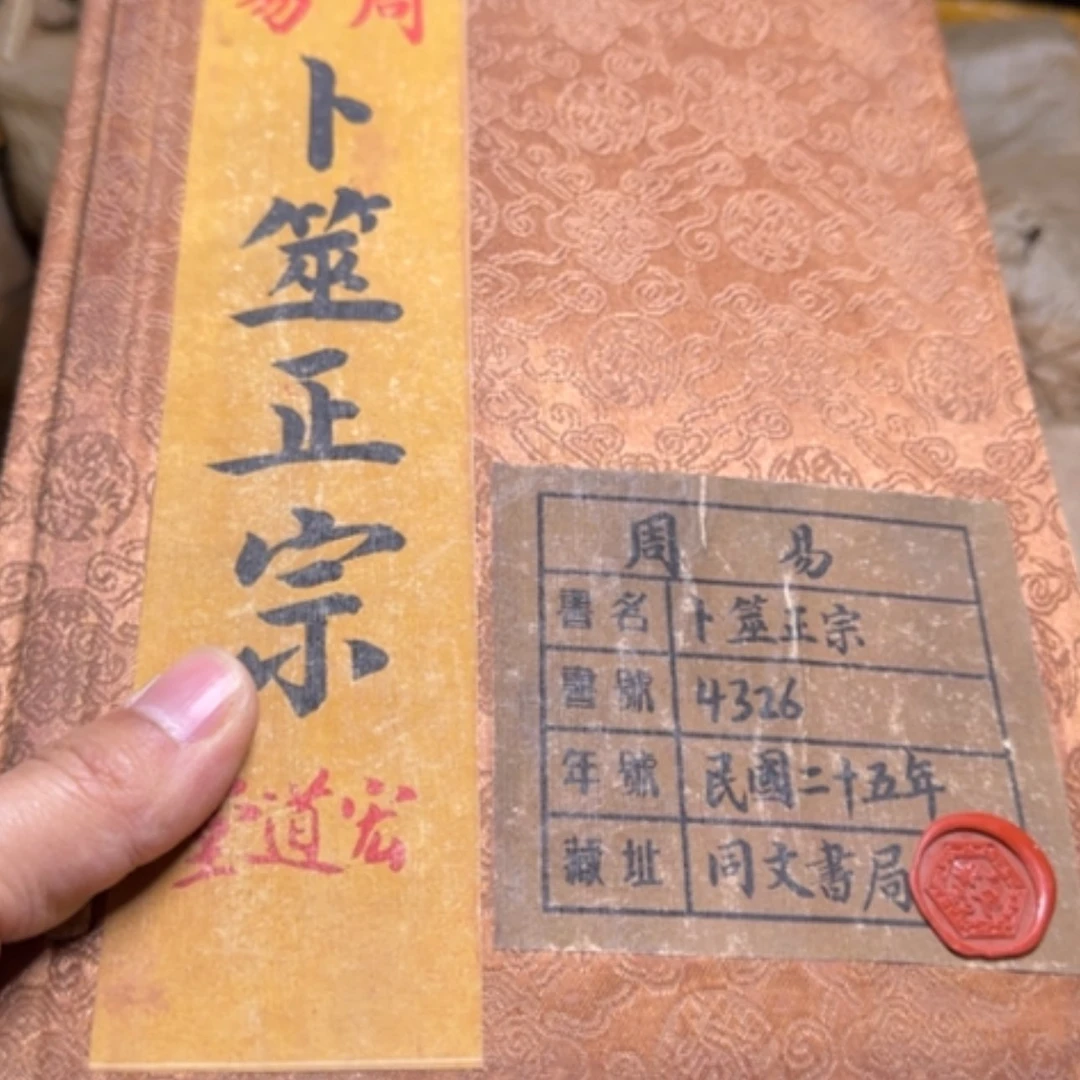 易周
卜筮正宗
道宏
周易
書名 卜筮正宗
書號 4326
年號 民國二十五年
藏址 同文書局